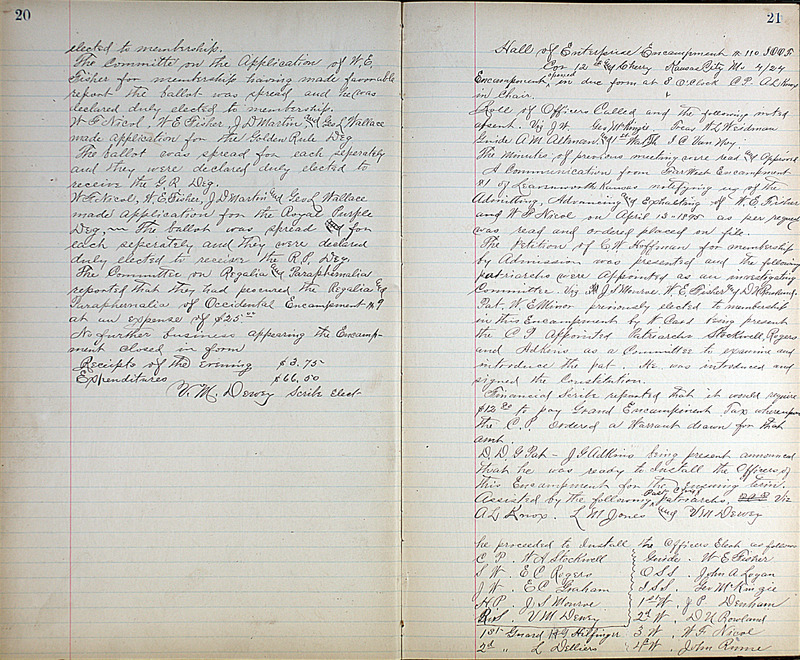 20
elected to membership.
The Committee on the Application of W.E.
Fisher for membership having made favorable
report the ballot was spread and he was
declared duly elected to membership.
W F Nicol, W E Fisher, J D Martin and Geo L Wallace
made application for the Golden Rule Deg
The ballot was spread for each seperately
and they were declared duly elected to
receive the G. R. Deg.
W F Nicol, W. E. Fisher, J D Martin and Geo L Wallace
made application for the Royal Purple
Deg. The ballot was spread for
each seperately and they were declared
duly elected to receive the R. P. Deg
The Committee on Regalia and Paraphernalia
reported that they had procured the Regalia and
Paraphernalia of Occidental Encampment No 9
at an expense of $25.00
No further business appearing the Encamp-
ment closed in form
Receipts of the evening $3.75
Expenditures $66.50
V. M. Dewey Scribe Elect
21
Hall of Enterprise Encampment No 110 I O O F
Cor 12th and Cherry Kansas City Mo 4/24
Encampment opened in due form at 8 O'Clock C. P. A L Knox
in Chair.
Roll of Officers Called and the following noted
absent. Viz J W. Geo McKinzie, Treas W L Weidman
Guide A M Altman, and 1st W I C Van Wey.
The Minutes of previous meeting were read and Approved
A Communication from Far West Encampment
81 of Leavenworth Kansas notifying us of the
Admitting, Advancing and Exhalting of W. E. Fisher
and W F Nicol on April 13-1895 as per request
was read and ordered placed on file.
The Petition of C W Hoffman for membership
by Admission was presented and the following
patriarchs were Appointed as an investigating
Committee. Viz J S Monroe W. E. Fisher and D N Rowland.
Pat. W E Minor previously elected to membership
in this Encampment by W Card being present
the C. P. Appointed Patriarchs Stockwell, Rogers
and Adkins as a Committee to examine and
introduce the pat. He was introduced and
signed the Constitution.
Financial Scribe reported that it would require
$12.00 to pay Grand Encampment Tax whereupon
the C. P. ordered a Warrant drawn for that
amt.
D. D. G Pat - J G Adkins being present announced
that he was ready to Install the Officers of
this Encampment for the ensuing term.
Assisted by the following Past Chief Patriarchs. Viz
A L Knox. L M Jones and V M Dewey
he proceeded to Install the Officers Elect as follows
C. P. W A Stockwell Guide. W E Fisher
S W. E C Rogers O S S. John A Logan
J W. E C Graham I S S. Geo McKinzie
H. P. J. S Monroe 1st W. J P Denham
R. S. V M Dewey 2d W. D N Rowland
1st Guard H G Hilfinger 3 W. W F Nicol
2d " L Delliers 4th W. John Rinne